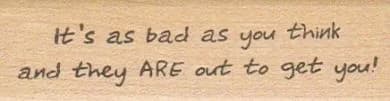 It's as bad as you think
and they ARE out to get you!